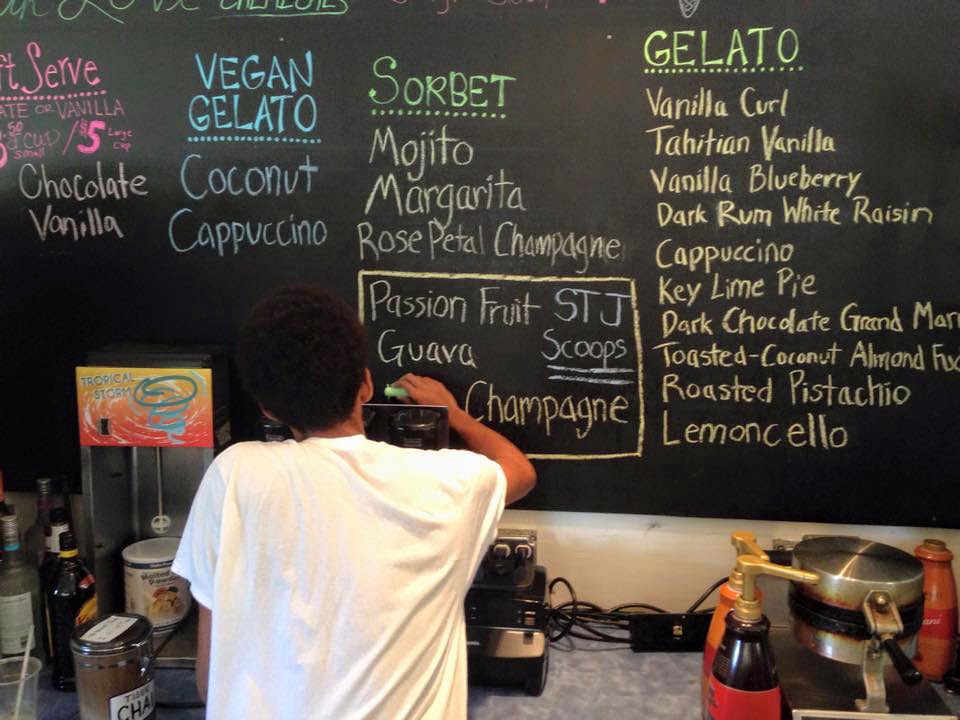 ft Serve
ATE OR VANILLA
.50 CUP / $5 Large Cup
small
Chocolate
Vanilla
VEGAN
GELATO
Coconut
Cappuccino
SORBET
Mojito
Margarita
Rose Petal Champagne
Passion Fruit STJ
Guava Scoops
Champagne
GELATO
Vanilla Curl
Tahitian Vanilla
Vanilla Blueberry
Dark Rum White Raisin
Cappuccino
Key Lime Pie
Dark Chocolate Grand Mar
Toasted-Coconut Almond Fu
Roasted Pistachio
Lemoncello
TROPICAL
STORM
Malted Milk
Powder
CHA